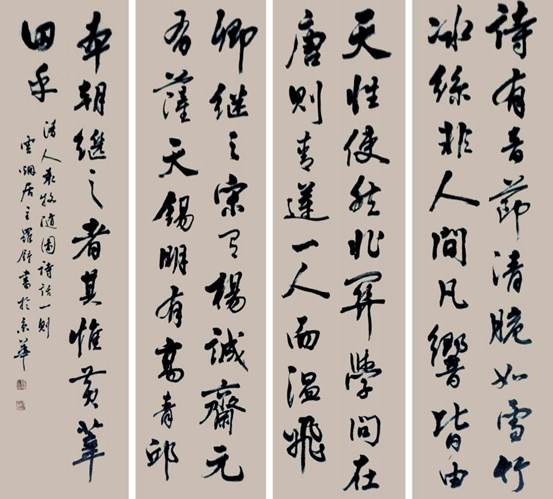 詩有音節清脆如雪竹
冰絲非人間凡響皆由
天性使然非關學問在
唐則青蓮一人而温飛
卿继之宋有楊誠齋元
有薩天錫明有高青邱
本朝继之者其惟黄莘
田乎
清人袁枚隨園詩話一則
雲烟居主羅書於京華